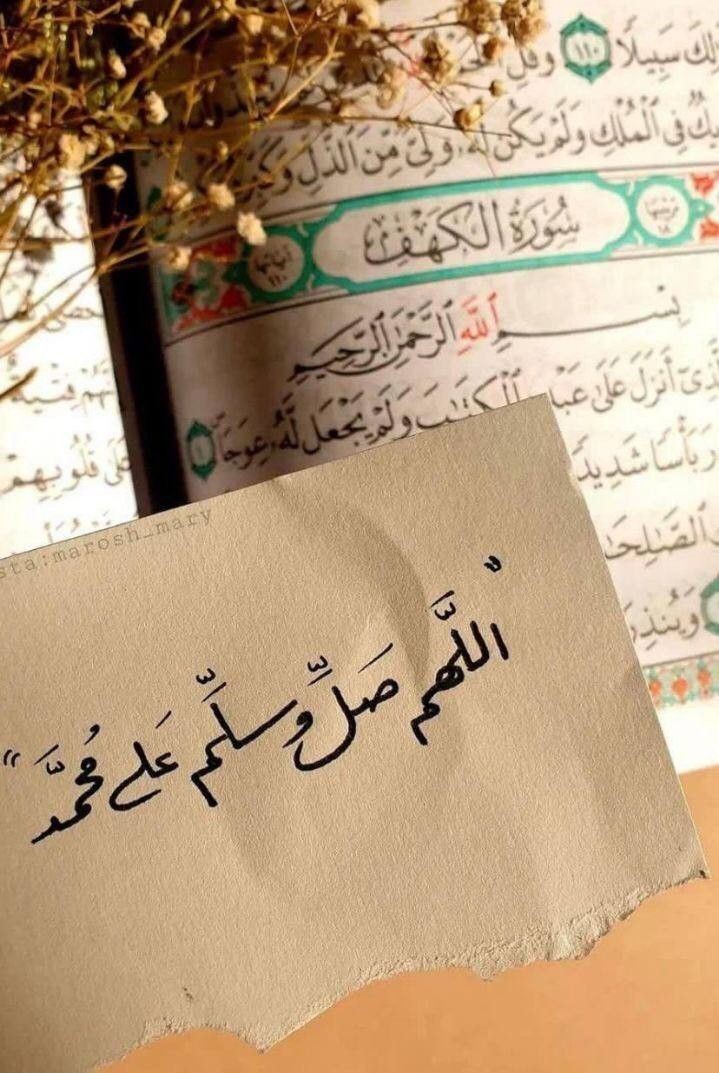 لك سبيلا ١١٠ وقل
في الملك ولم يكن له ولي من الذل وكبره
ترتيبها ١٨ سُورَةُ الكَهْفِ آياتها ١١٠
بِسْمِ اللَّهِ الرَّحْمَٰنِ الرَّحِيمِ
ذي أنزل على عبد الكتاب ولم يجعل له عوجا ١
بأسا شديد
الصلحا
وينذر
فتية
على قلوبهم
sta:marosh_mary
"اللَّهم صَلِّ وَسلِّم عَلى مُحمَّد"